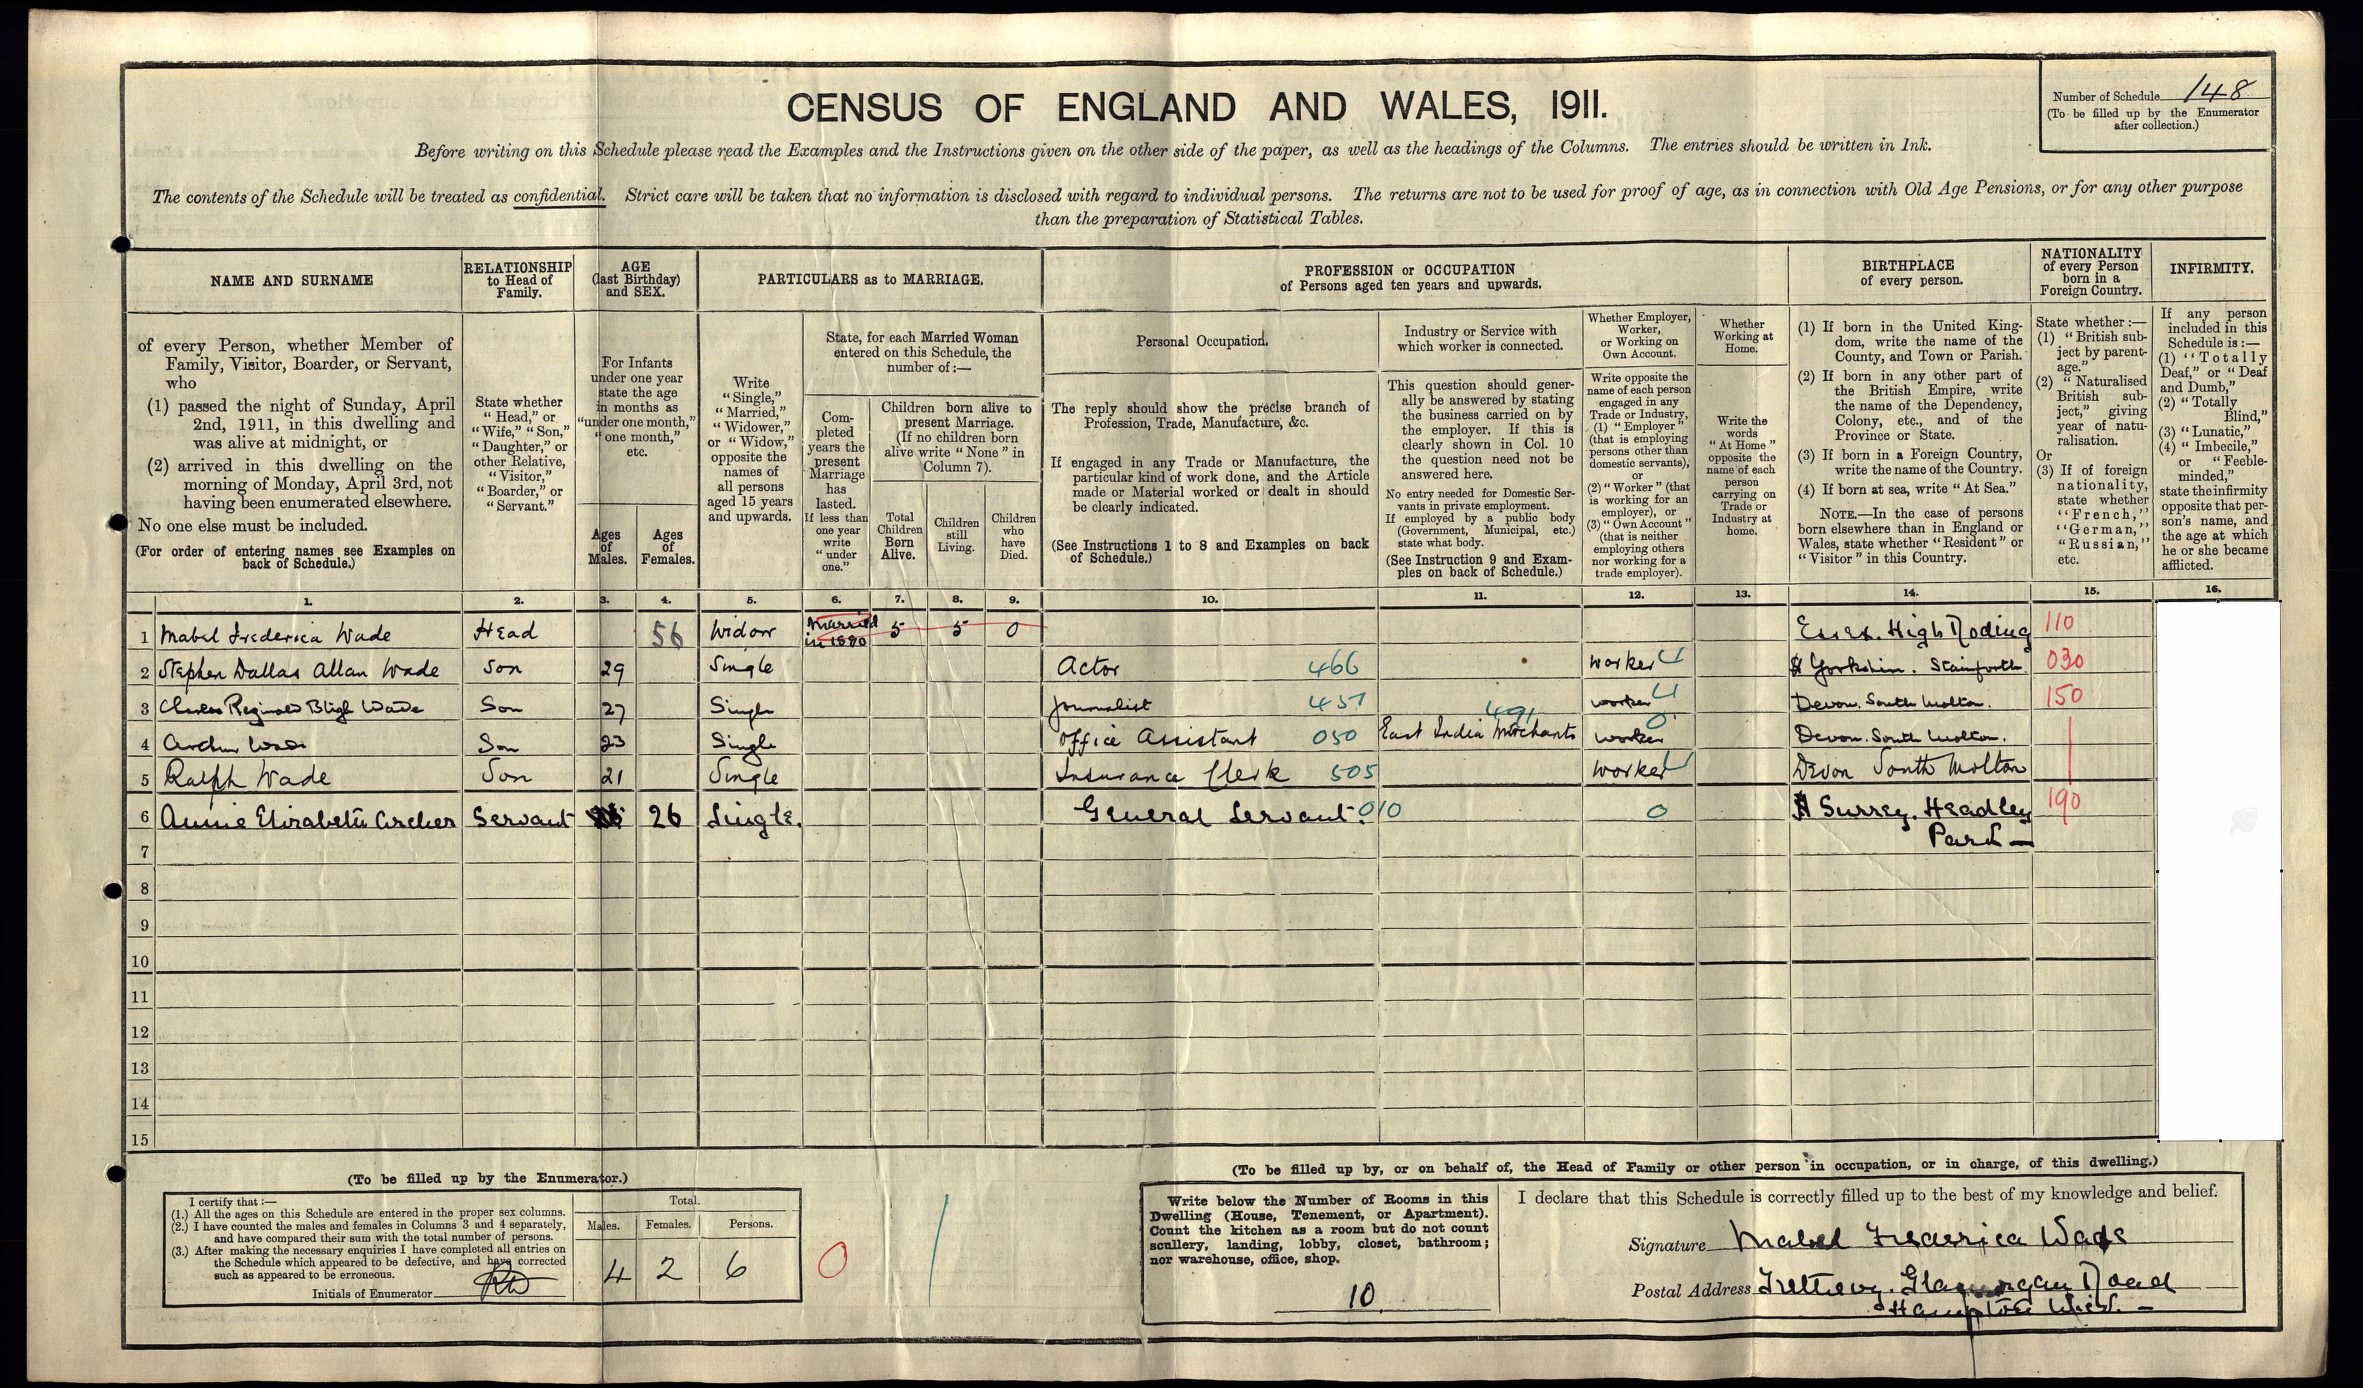 CENSUS OF ENGLAND AND WALES, 1911.
Number of Schedule 148
(To be filled up by the Enumerator
after collection.)
Before writing on this Schedule please read the Examples and the Instructions given on the other side of the paper, as well as the headings of the Columns. The entries should be written in Ink.
The contents of the Schedule will be treated as confidential. Strict care will be taken that no information is disclosed with regard to individual persons. The returns are not to be used for proof of age, as in connection with Old Age Pensions, or for any other purpose
than the preparation of Statistical Tables.
NAME AND SURNAME
of every Person, whether Member of
Family, Visitor, Boarder, or Servant,
who
(1) passed the night of Sunday, April
2nd, 1911, in this dwelling and
was alive at midnight, or
(2) arrived in this dwelling on the
morning of Monday, April 3rd, not
having been enumerated elsewhere.
No one else must be included.
(For order of entering names see Examples on
back of Schedule.)
RELATIONSHIP
to Head of
Family.
State whether
"Head," or
"Wife," "Son,"
"Daughter," or
other Relative,
"Visitor,"
"Boarder," or
"Servant."
AGE
(last Birthday)
and SEX.
For Infants
under one year
state the age
in months as
"under one month,"
"one month,"
etc.
Ages
of
Males.
Ages
of
Females.
PARTICULARS as to MARRIAGE.
Write
"Single,"
"Married,"
"Widower,"
or "Widow,"
opposite the
names of
all persons
aged 15 years
and upwards.
State, for each Married Woman
entered on this Schedule, the
number of:—
Com-
pleted
years the
present
Marriage
has
lasted.
If less than
one year
write
"under
one."
Children born alive to
present Marriage.
(If no children born
alive write "None" in
Column 7).
Total
Children
Born
Alive.
Children
still
Living.
Children
who
have
Died.
PROFESSION or OCCUPATION
of Persons aged ten years and upwards.
Personal Occupation.
The reply should show the precise branch of
Profession, Trade, Manufacture, &c.
If engaged in any Trade or Manufacture, the
particular kind of work done, and the Article
made or Material worked or dealt in should
be clearly indicated.
(See Instructions 1 to 8 and Examples on back
of Schedule.)
Industry or Service with
which worker is connected.
This question should gener-
ally be answered by stating
the business carried on by
the employer. If this is
clearly shown in Col. 10
the question need not be
answered here.
No entry needed for Domestic Ser-
vants in private employment.
If employed by a public body
(Government, Municipal, etc.)
state what body.
(See Instruction 9 and Exam-
ples on back of Schedule.)
Whether Employer,
Worker,
or Working on
Own Account.
Write opposite the
name of each person
engaged in any
Trade or Industry,
(1) "Employer"
(that is employing
persons other than
domestic servants),
or
(2) "Worker" (that
is working for an
employer), or
(3) "Own Account"
(that is neither
employing others
nor working for a
trade employer).
Whether
Working at
Home.
Write the
words
"At Home"
opposite the
name of each
person
carrying on
Trade or
Industry at
home.
BIRTHPLACE
of every person.
(1) If born in the United King-
dom, write the name of the
County, and Town or Parish.
(2) If born in any other part of
the British Empire, write
the name of the Dependency,
Colony, etc., and of the
Province or State.
(3) If born in a Foreign Country,
write the name of the Country.
(4) If born at sea, write "At Sea."
NOTE.—In the case of persons
born elsewhere than in England or
Wales, state whether "Resident" or
"Visitor" in this Country.
NATIONALITY
of every Person
born in a
Foreign Country.
State whether:—
(1) "British sub-
ject by parent-
age."
(2) "Naturalised
British sub-
ject," giving
year of natu-
ralisation.
Or
(3) If of foreign
nationality,
state whether
"French,"
"German,"
"Russian,"
etc.
INFIRMITY.
If any person
included in this
Schedule is:—
(1) "Totally
Deaf," or "Deaf
and Dumb,"
(2) "Totally
Blind,"
(3) "Lunatic,"
(4) "Imbecile,"
or "Feeble-
minded,"
state the infirmity
opposite that per-
son's name, and
the age at which
he or she became
afflicted.
1. 2. 3. 4. 5. 6. 7. 8. 9. 10. 11. 12. 13. 14. 15. 16.
1 Mabel Frederica Wade Head 56 Widow Married in 1880 5 5 0 Essex. High Roding 110
2 Stephen Dallas Allan Wade Son 29 Single Actor 466 Worker Yorkshire. Stainforth 030
3 Charles Reginald Bligh Wade Son 27 Single Journalist 457 Worker Devon. South Molton. 150
4 Arthur Wade Son 23 Single Office Assistant 050 East India Merchants 491 0 Worker Devon. South Molton.
5 Ralph Wade Son 21 Single Insurance Clerk 505 Worker Devon South Molton
6 Annie Elizabeth Archer Servant 26 Single. General Servant. 010 0 Surrey. Headley 190
Park —
7
8
9
10
11
12
13
14
15
(To be filled up by the Enumerator.)
I certify that:—
(1.) All the ages on this Schedule are entered in the proper sex columns.
(2.) I have counted the males and females in Columns 3 and 4 separately,
and have compared their sum with the total number of persons.
(3.) After making the necessary enquiries I have completed all entries on
the Schedule which appeared to be defective, and have corrected
such as appeared to be erroneous.
Initials of Enumerator
Total.
Males. Females. Persons.
4 2 6
0
(To be filled up by, or on behalf of, the Head of Family or other person in occupation, or in charge, of this dwelling.)
Write below the Number of Rooms in this
Dwelling (House, Tenement, or Apartment).
Count the kitchen as a room but do not count
scullery, landing, lobby, closet, bathroom;
nor warehouse, office, shop.
10
I declare that this Schedule is correctly filled up to the best of my knowledge and belief.
Signature Mabel Frederica Wade
Postal Address Glamorgan Road
Hampton Wick. —